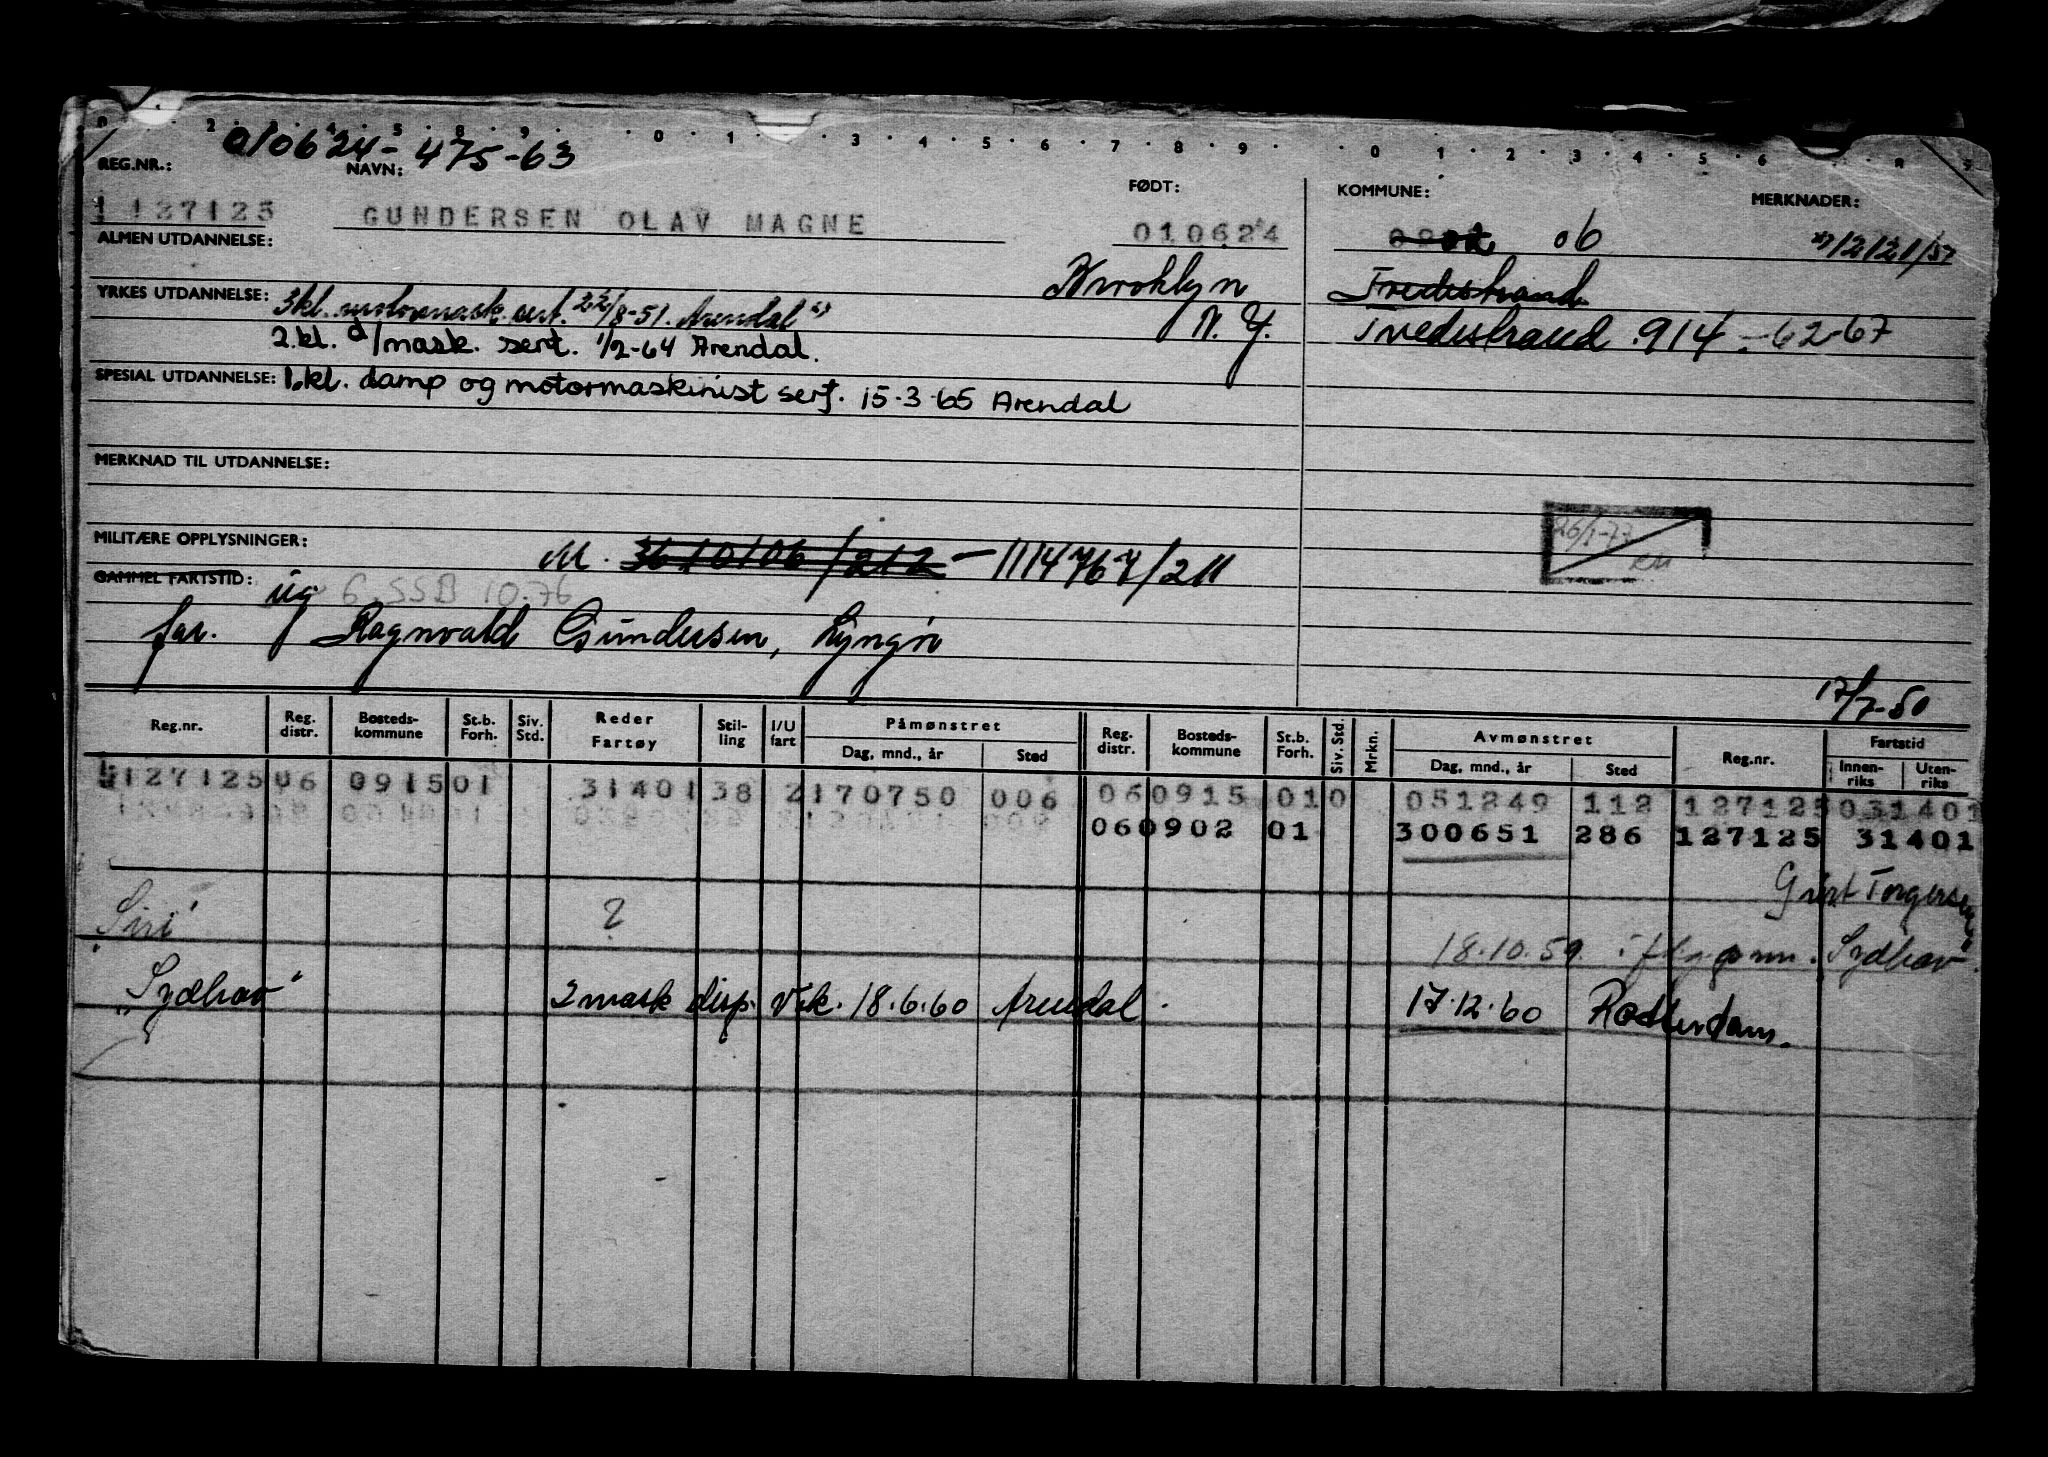 010624-475-63
REG.NR.: NAVN: FØDT: KOMMUNE: MERKNADER:
127125 GUNDERSEN OLAV MAGNE 010624 06 *) 12121/57
ALMEN UTDANNELSE:
Brooklyn Tvedestrand
YRKES UTDANNELSE: 3kl. motormask. sert. 22/8-51. Arendal *)
N.Y. Tvedestrand 914 - 62-67
2.kl. d/mask. sert. 1/2-64 Arendal.
SPESIAL UTDANNELSE: 1.kl. damp og motormaskinist sert. 15-3-65 Arendal
MERKNAD TIL UTDANNELSE:
26/1-77
MILITÆRE OPPLYSNINGER: M. 3610106/212 - 1114767/211
GAMMEL FARTSTID: ug 6.SSB 10.76
far. Ragnvald Gundersen, Lyngør
17/7-50
Reg.nr. Reg. distr. Bosteds-kommune St.b. Forh. Siv. Std. Reder Fartøy Stil-ling I/U fart Påmønstret Dag, mnd., år Sted Reg. distr. Bosteds-kommune St.b. Forh. Siv. Std. Mrkn. Avmønstret Dag, mnd., år Sted Reg.nr. Fartstid Innen-riks Uten-riks
127125 06 0915 01 31401 38 2 170750 006 06 0915 01 0 051249 112 127125 031401
06 0902 01 300651 286 127125 31401
Torgersen
"Siri" ? 18.10.59. "Sydhav".
"Sydhav" 2 mask disp. Vik. 18.6.60 Arendal. 17.12.60 Rotterdam.